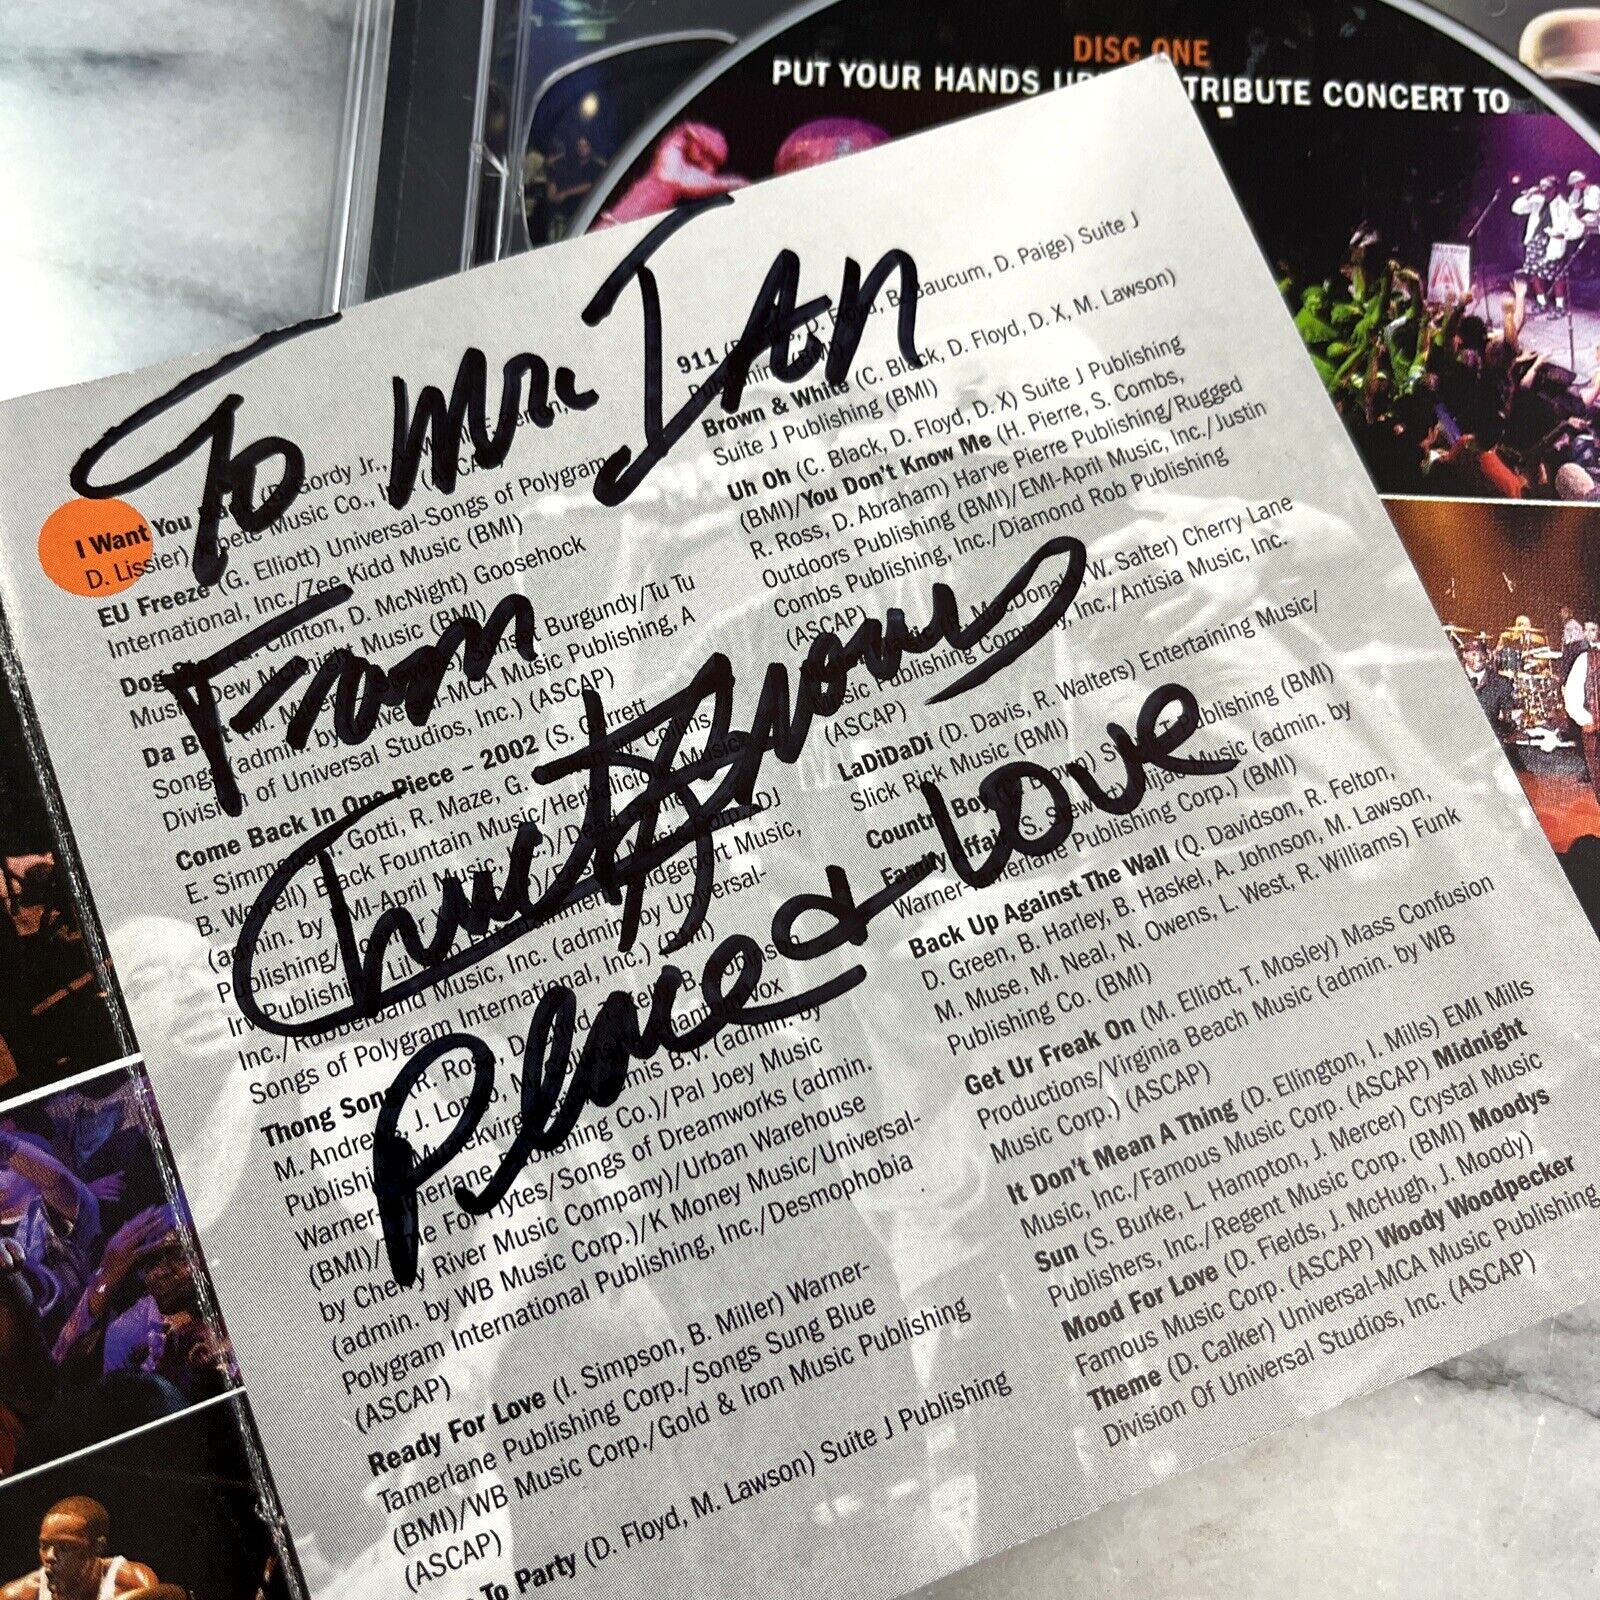 DISC ONE
PUT YOUR HANDS UP TRIBUTE CONCERT TO
To Mr. IAn
From
Chuck Brown
Peace & Love
I Want You Gordy Jr.,
D. Lissier) Jobete Music Co., Inc. (ASCAP)
EU Freeze (G. Elliott) Universal-Songs of Polygram
International, Inc./Zee Kidd Music (BMI)
(G. Clinton, D. McNight) Goosehock
Music/Dew McKnight Music (BMI)
Da Butt (M. Miller) Sunset Burgundy/Tu Tu
Songs (admin. by Universal-MCA Music Publishing, A
Division of Universal Studios, Inc.) (ASCAP)
Come Back In One Piece – 2002 (S. Garrett,
E. Simmons, I. Gotti, R. Maze, G. W. Collins,
B. Worrell) Black Fountain Music/Herbilicious Music
(admin. by EMI-April Music, Inc.)/Dead Game
Publishing/ Music Corp./DJ
Irv Publishing/Lil Rob Entertainment/Bridgeport Music,
Inc./Rubberband Music, Inc. (admin. by Universal-
Songs of Polygram International, Inc.) (BMI)
Thong Song (R. Rosa, D. Child,
M. Andrews, J. Longo,
Publishing/Muziekvirgerij Artemis B.V. (admin. by
Warner-Tamerlane Publishing Co.)/Pal Joey Music
(BMI)/Time For Flytes/Songs of Dreamworks (admin.
by Cherry River Music Company)/Urban Warehouse
(admin. by WB Music Corp.)/K Money Music/Universal-
Polygram International Publishing, Inc./Desmophobia
(ASCAP)
Ready For Love (I. Simpson, B. Miller) Warner-
Tamerlane Publishing Corp./Songs Sung Blue
(BMI)/WB Music Corp./Gold & Iron Music Publishing
(ASCAP)
To Party (D. Floyd, M. Lawson) Suite J Publishing
911 D. Floyd, B. Baucum, D. Paige) Suite J
Publishing (BMI)
Brown & White (C. Black, D. Floyd, D. X, M. Lawson)
Suite J Publishing (BMI)
Uh Oh (C. Black, D. Floyd, D. X) Suite J Publishing
(BMI)/You Don't Know Me (H. Pierre, S. Combs,
R. Ross, D. Abraham) Harve Pierre Publishing/Rugged
Outdoors Publishing (BMI)/EMI-April Music, Inc./Justin
Combs Publishing, Inc./Diamond Rob Publishing
(ASCAP)
MacDonald, W. Salter) Cherry Lane
Music Publishing Company, Inc./Antisia Music, Inc.
(ASCAP)
LaDiDaDi (D. Davis, R. Walters) Entertaining Music/
Slick Rick Music (BMI)
Country Boy Brown) Publishing (BMI)
Family Affair (S. Stewart) Mijac Music (admin. by
Warner-Tamerlane Publishing Corp.) (BMI)
Back Up Against The Wall (Q. Davidson, R. Felton,
D. Green, B. Harley, B. Haskel, A. Johnson, M. Lawson,
M. Muse, M. Neal, N. Owens, L. West, R. Williams) Funk
Publishing Co. (BMI)
Get Ur Freak On (M. Elliott, T. Mosley) Mass Confusion
Productions/Virginia Beach Music (admin. by WB
Music Corp.) (ASCAP)
It Don't Mean A Thing (D. Ellington, I. Mills) EMI Mills
Music, Inc./Famous Music Corp. (ASCAP) Midnight
Sun (S. Burke, L. Hampton, J. Mercer) Crystal Music
Publishers, Inc./Regent Music Corp. (BMI) Moodys
Mood For Love (D. Fields, J. McHugh, J. Moody)
Famous Music Corp. (ASCAP) Woody Woodpecker
Theme (D. Calker) Universal-MCA Music Publishing
Division Of Universal Studios, Inc. (ASCAP)